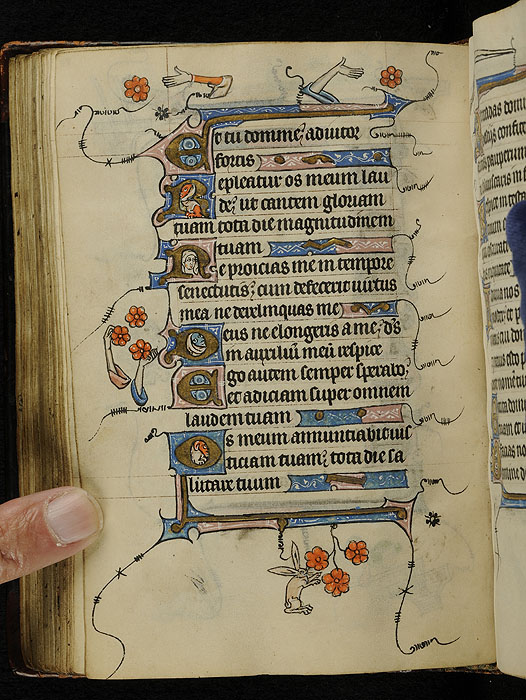 Et tu domine: adiutor
fortis
Repleatur os meum lau
de: ut cantem gloriam
tuam tota die magnitudinem
tuam
Ne proicias me in tempore
senectutis: cum defecerit uirtus
mea ne derelinquas me
Deus ne elongeris a me: ds̄
m auxiliū meū respice
Ego autem semper sperabo:
et adiciam super omnem
laudem tuam
Os meum annunciabit ius
ticiam tuam: tota die sa
lutare tuum